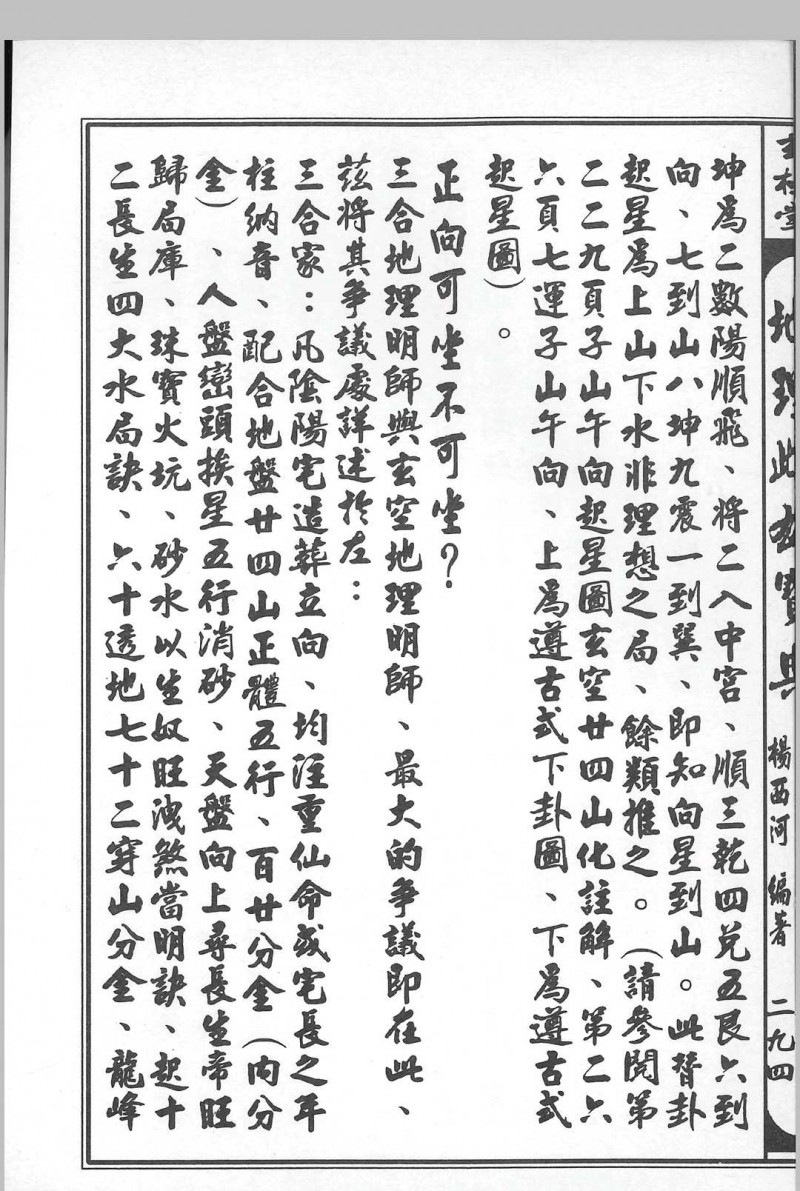 坤為二數陽順飛、將二入中宮、順三乾四兌五艮六到
向、七到山八坤九震一到巽、即知向星到山。此替卦
起星為上山下水非理想之局、餘類推之。（請參閱第
二二九頁子山午向起星圖玄空廿四山化註解、第二六
六頁七運子山午向、上為遵古式下卦圖、下為遵古式
起星圖）。
正向可坐不可坐？
三合地理明師與玄空地理明師、最大的爭議即在此、
茲將其爭議處詳述於左：
三合家：凡陰陽宅造葬立向、均注重仙命或宅長之年
柱納音、配合地盤廿四山正體五行、百廿分金（內分
金）、人盤巒頭挨星五行消砂、天盤向上尋長生帝旺
歸局庫、珠寶火坑、砂水以生奴旺洩煞當明訣、起十
二長生四大水局訣、六十透地七十二穿山分金、龍峰
地理 寶典 楊西河 編著 二九四